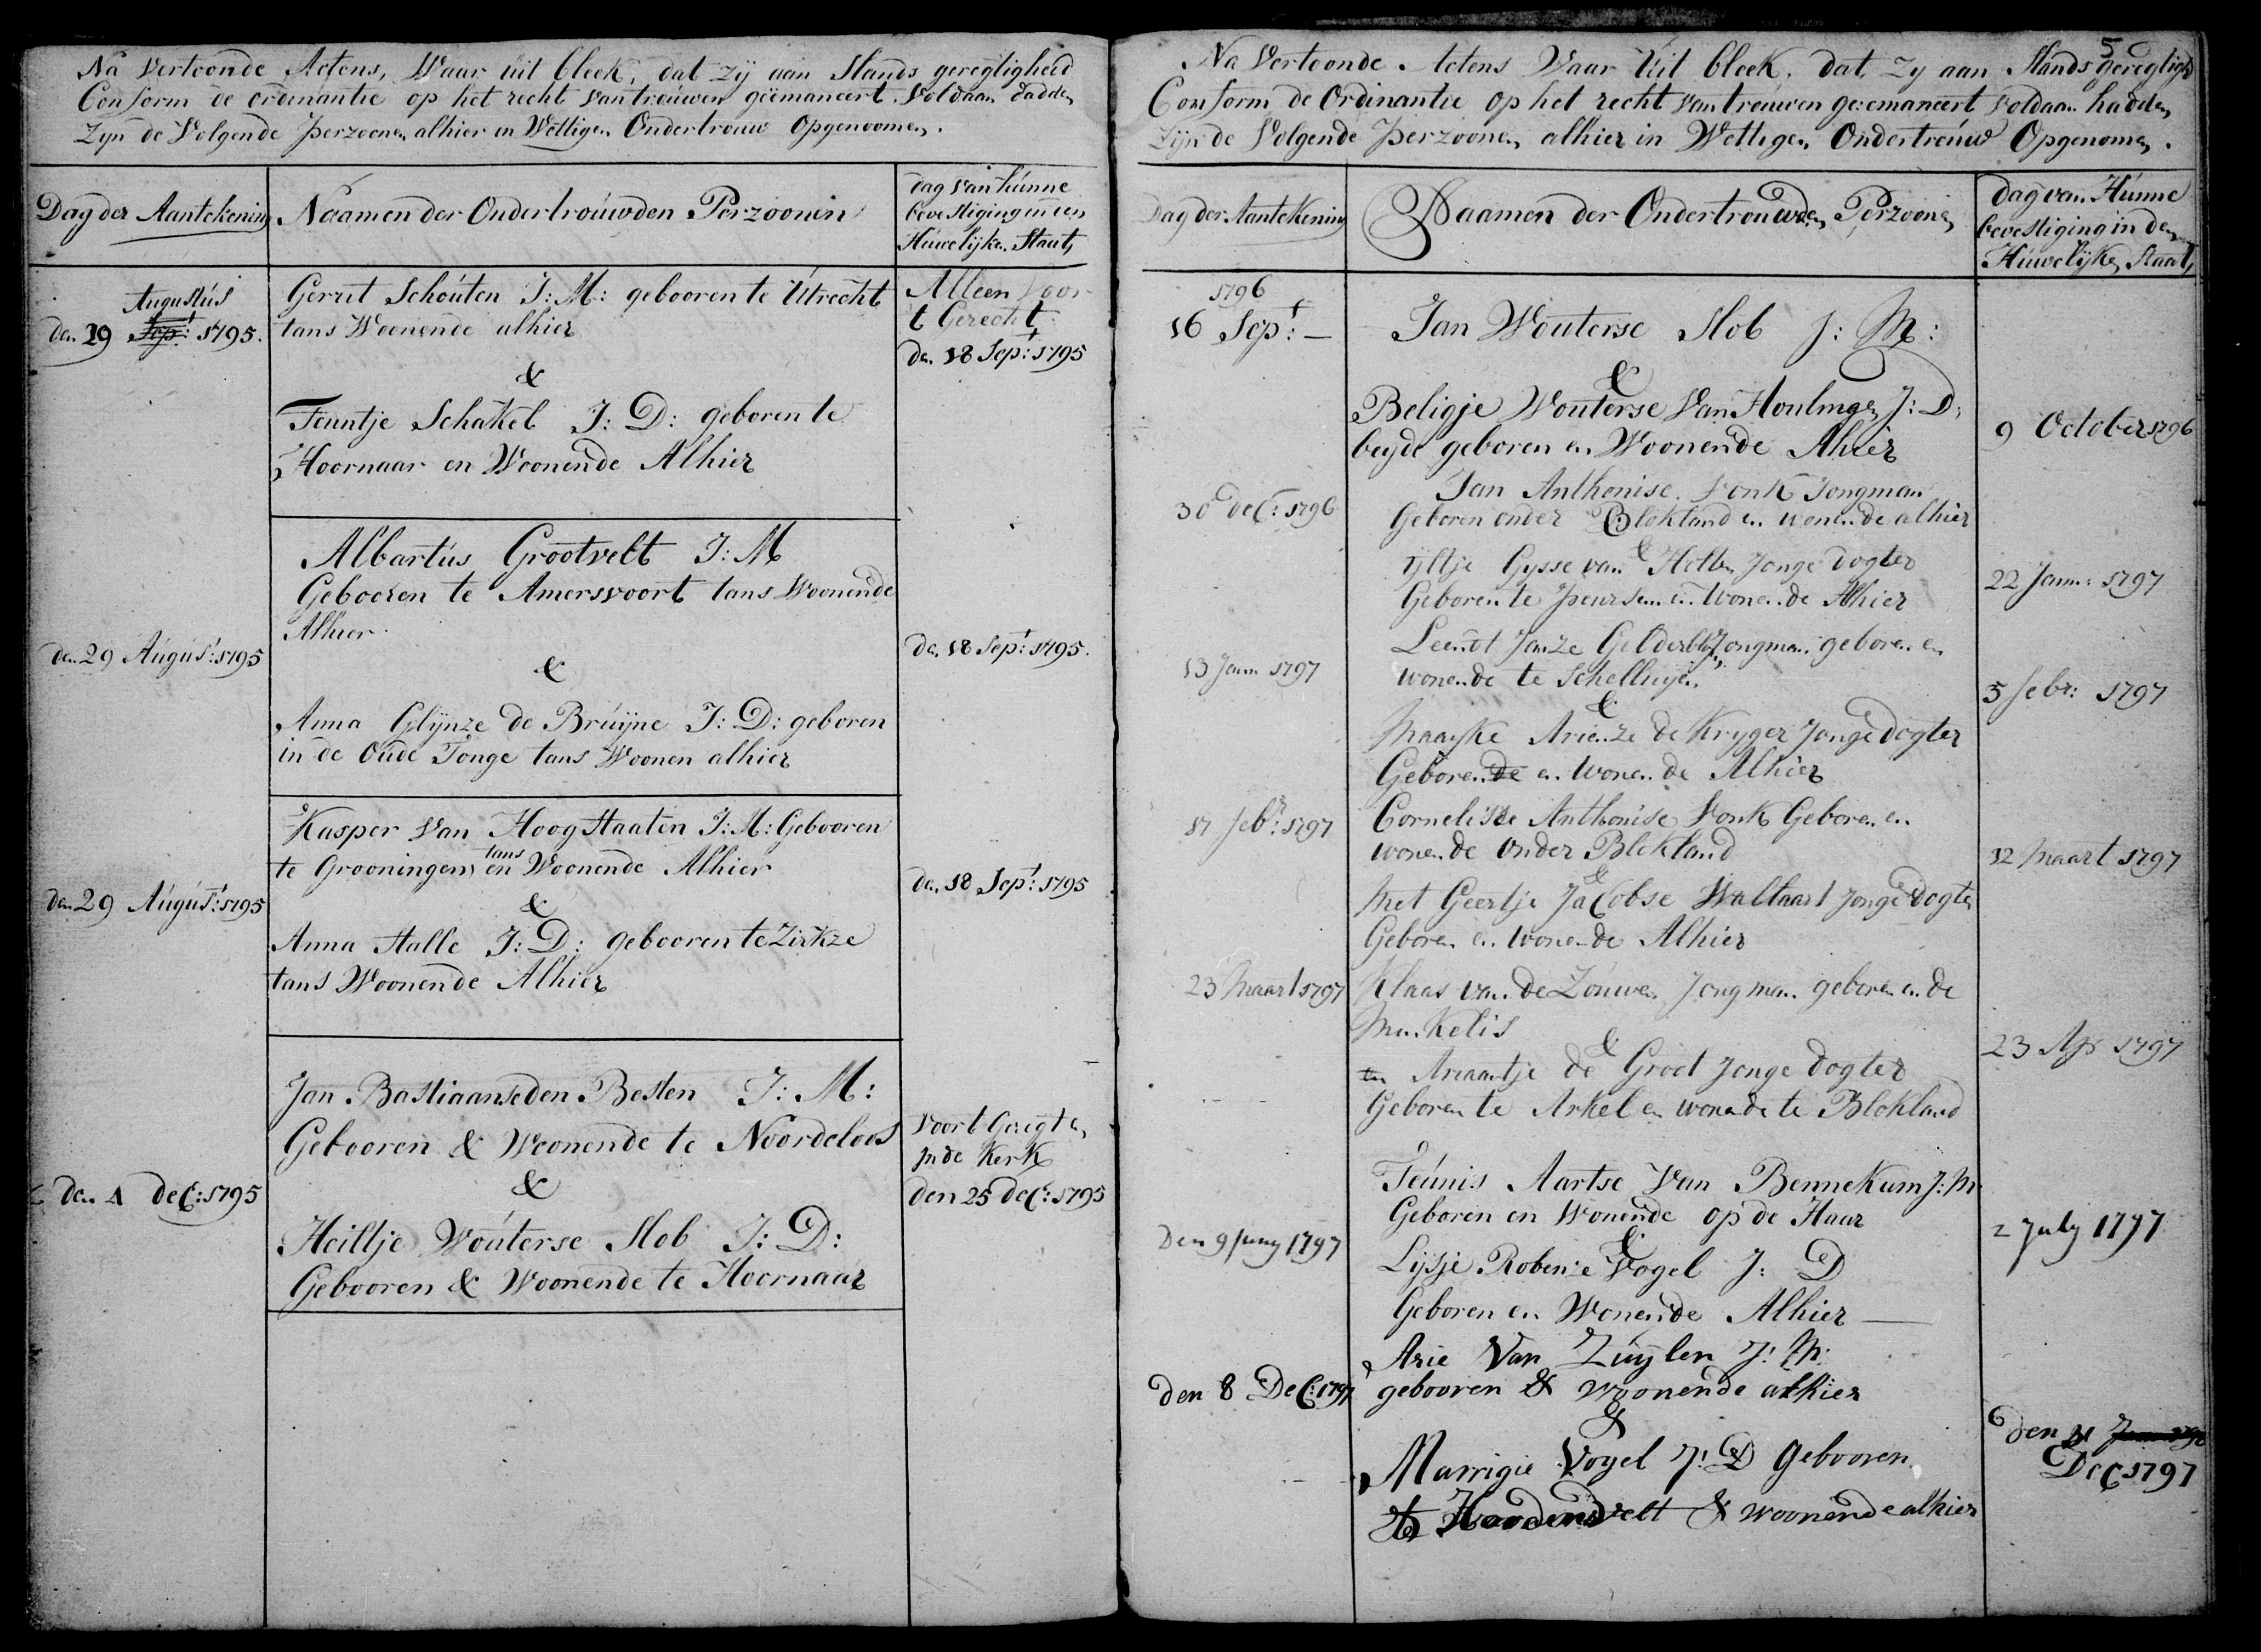 Na Vertoonde Actens, Waar uit bleek, dat zij aan Slands geregtigheid
Conform de ordenantie op het recht van trouwen geëmaneert. Voldaan hadden
Zijn de Volgende Perzoonen alhier in Wettigen Ondertrouw Opgenoomen.
Dag der Aantekening
Naamen der Ondertrouwden Perzoonen
dag van hunne
bevestiging in een
Huwelijken Staat
Augustus
den 29 Sept: 1795.
Gerrit Schouten J: M: gebooren te Utrecht
tans Woonende alhier
&
Teuntje Schakel J: D: geboren te
Hoornaar en Woonende Alhier
Alleen Voor
t Gerecht
den 18 Sept: 1795
den 29 August: 1795
Albartus Grootvelt J: M
Gebooren te Amersvoort tans Woonende
Alhier
&
Anna Glijnze de Bruijne J: D: geboren
in de Oude Tonge tans Woonen alhier
den 18 Sept: 1795.
den 29 August: 1795
Kasper Van Hoogstaaten J: M: Gebooren
te Grooningen en tans Woonende Alhier
&
Anna Stalle J: D: gebooren te Zirkze
tans Woonende Alhier
den 18 Sept: 1795
den 4 Dec: 1795
Jan Bastiaanse den Besten J: M:
Gebooren & Woonende te Noordeloos
&
Heiltje Wouterse Slob J: D:
Gebooren & Woonende te Hoornaar
Voort Geregt en
in de Kerk
den 25 Dec: 1795
5
Na Vertoonde Actens Waar Uit bleek, dat zy aan Slands geregtigh
Conform de Ordinantie op het recht van trouwen geëmaneert voldaan hadden
Zijn de Volgende Perzoonen alhier in Wettigen Ondertrouw Opgenomen.
Dag der Aantekening
Naamen der Ondertrouwden Perzoonen
Dag van Hunne
bevestiging in den
Huwelijken Staat
1796
16 Sept: —
Jan Wouterse Slob J: M:
&
Beligje Wouterse Van Houlingen J: D:
beyde geboren en Woonende Alhier
9 October 1796
30 dec: 1796
Jan Anthonise Vonk Jongman
Geboren onder Blokland en wonende alhier
&
Yltje Gysse van Hotten Jonge dogter
Geboren te Peursem en wonende Alhier
22 Janu: 1797
13 Janu 1797
Leendt Janze Gelderblo Jongman geboren en
wonende te Schelluijn
&
Maayke Arienze de Kryger Jonge dogter
Geborende en wonende Alhier
5 febr: 1797
17 febr: 1797
Cornelisse Anthonise Vonk Geboren en
wonende onder Blokland
&
Met Geertje Jacobse Waltaart Jonge dogter
Geboren en wonende Alhier
12 Maart 1797
23 Maart 1797
Klaas van de Zouwen Jongman geboren en de
Munkelis
&
Ariaantje de Groot Jonge dogter
Geboren te Arkel en wonende te Blokland
23 Ap 1797
Den 9 Juny 1797
Teunis Aartse Van Bennekum J: M
Geboren en Wonende op de Haar
&
Lijsje Robenze Vogel J: D
Geboren en Wonende Alhier —
2 July 1797
den 8 Dec: 1797
Arie Van Zuylen J: M:
gebooren & woonende alhier
&
Marrigie Vogel J: D Gebooren
te Hardensvelt & woonende alhier
den 31
Dec 1797